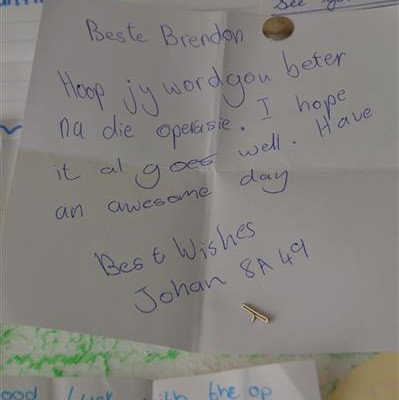 See
Beste Brendon
Hoop jy word gou beter
na die operasie. I hope
it al goes well. Have
an awesome day
Best Wishes
Johan 8A 49
ood luck with the op